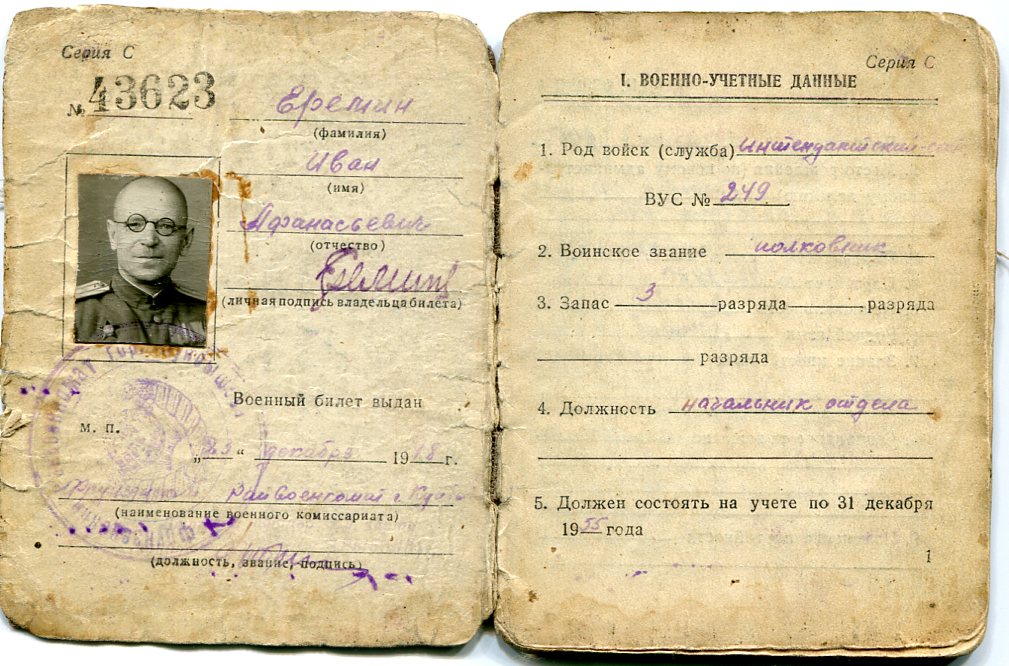 Серия С
№ 43623
Еремин
(фамилия)
Иван
(имя)
Афанасьевич
(отчество)
Еремин
(личная подпись владельца билета)
Военный билет выдан
м. п.
„23“ декабря 1948 г.
Райвоенкомат г.
(наименование военного комиссариата)
(должность, звание, подпись)
Серия С
I. ВОЕННО-УЧЕТНЫЕ ДАННЫЕ
1. Род войск (служба) интендантский
ВУС № 249
2. Воинское звание полковник
3. Запас 3 разряда , разряда
разряда
4. Должность начальник отдела
5. Должен состоять на учете по 31 декабря
1955 года
1